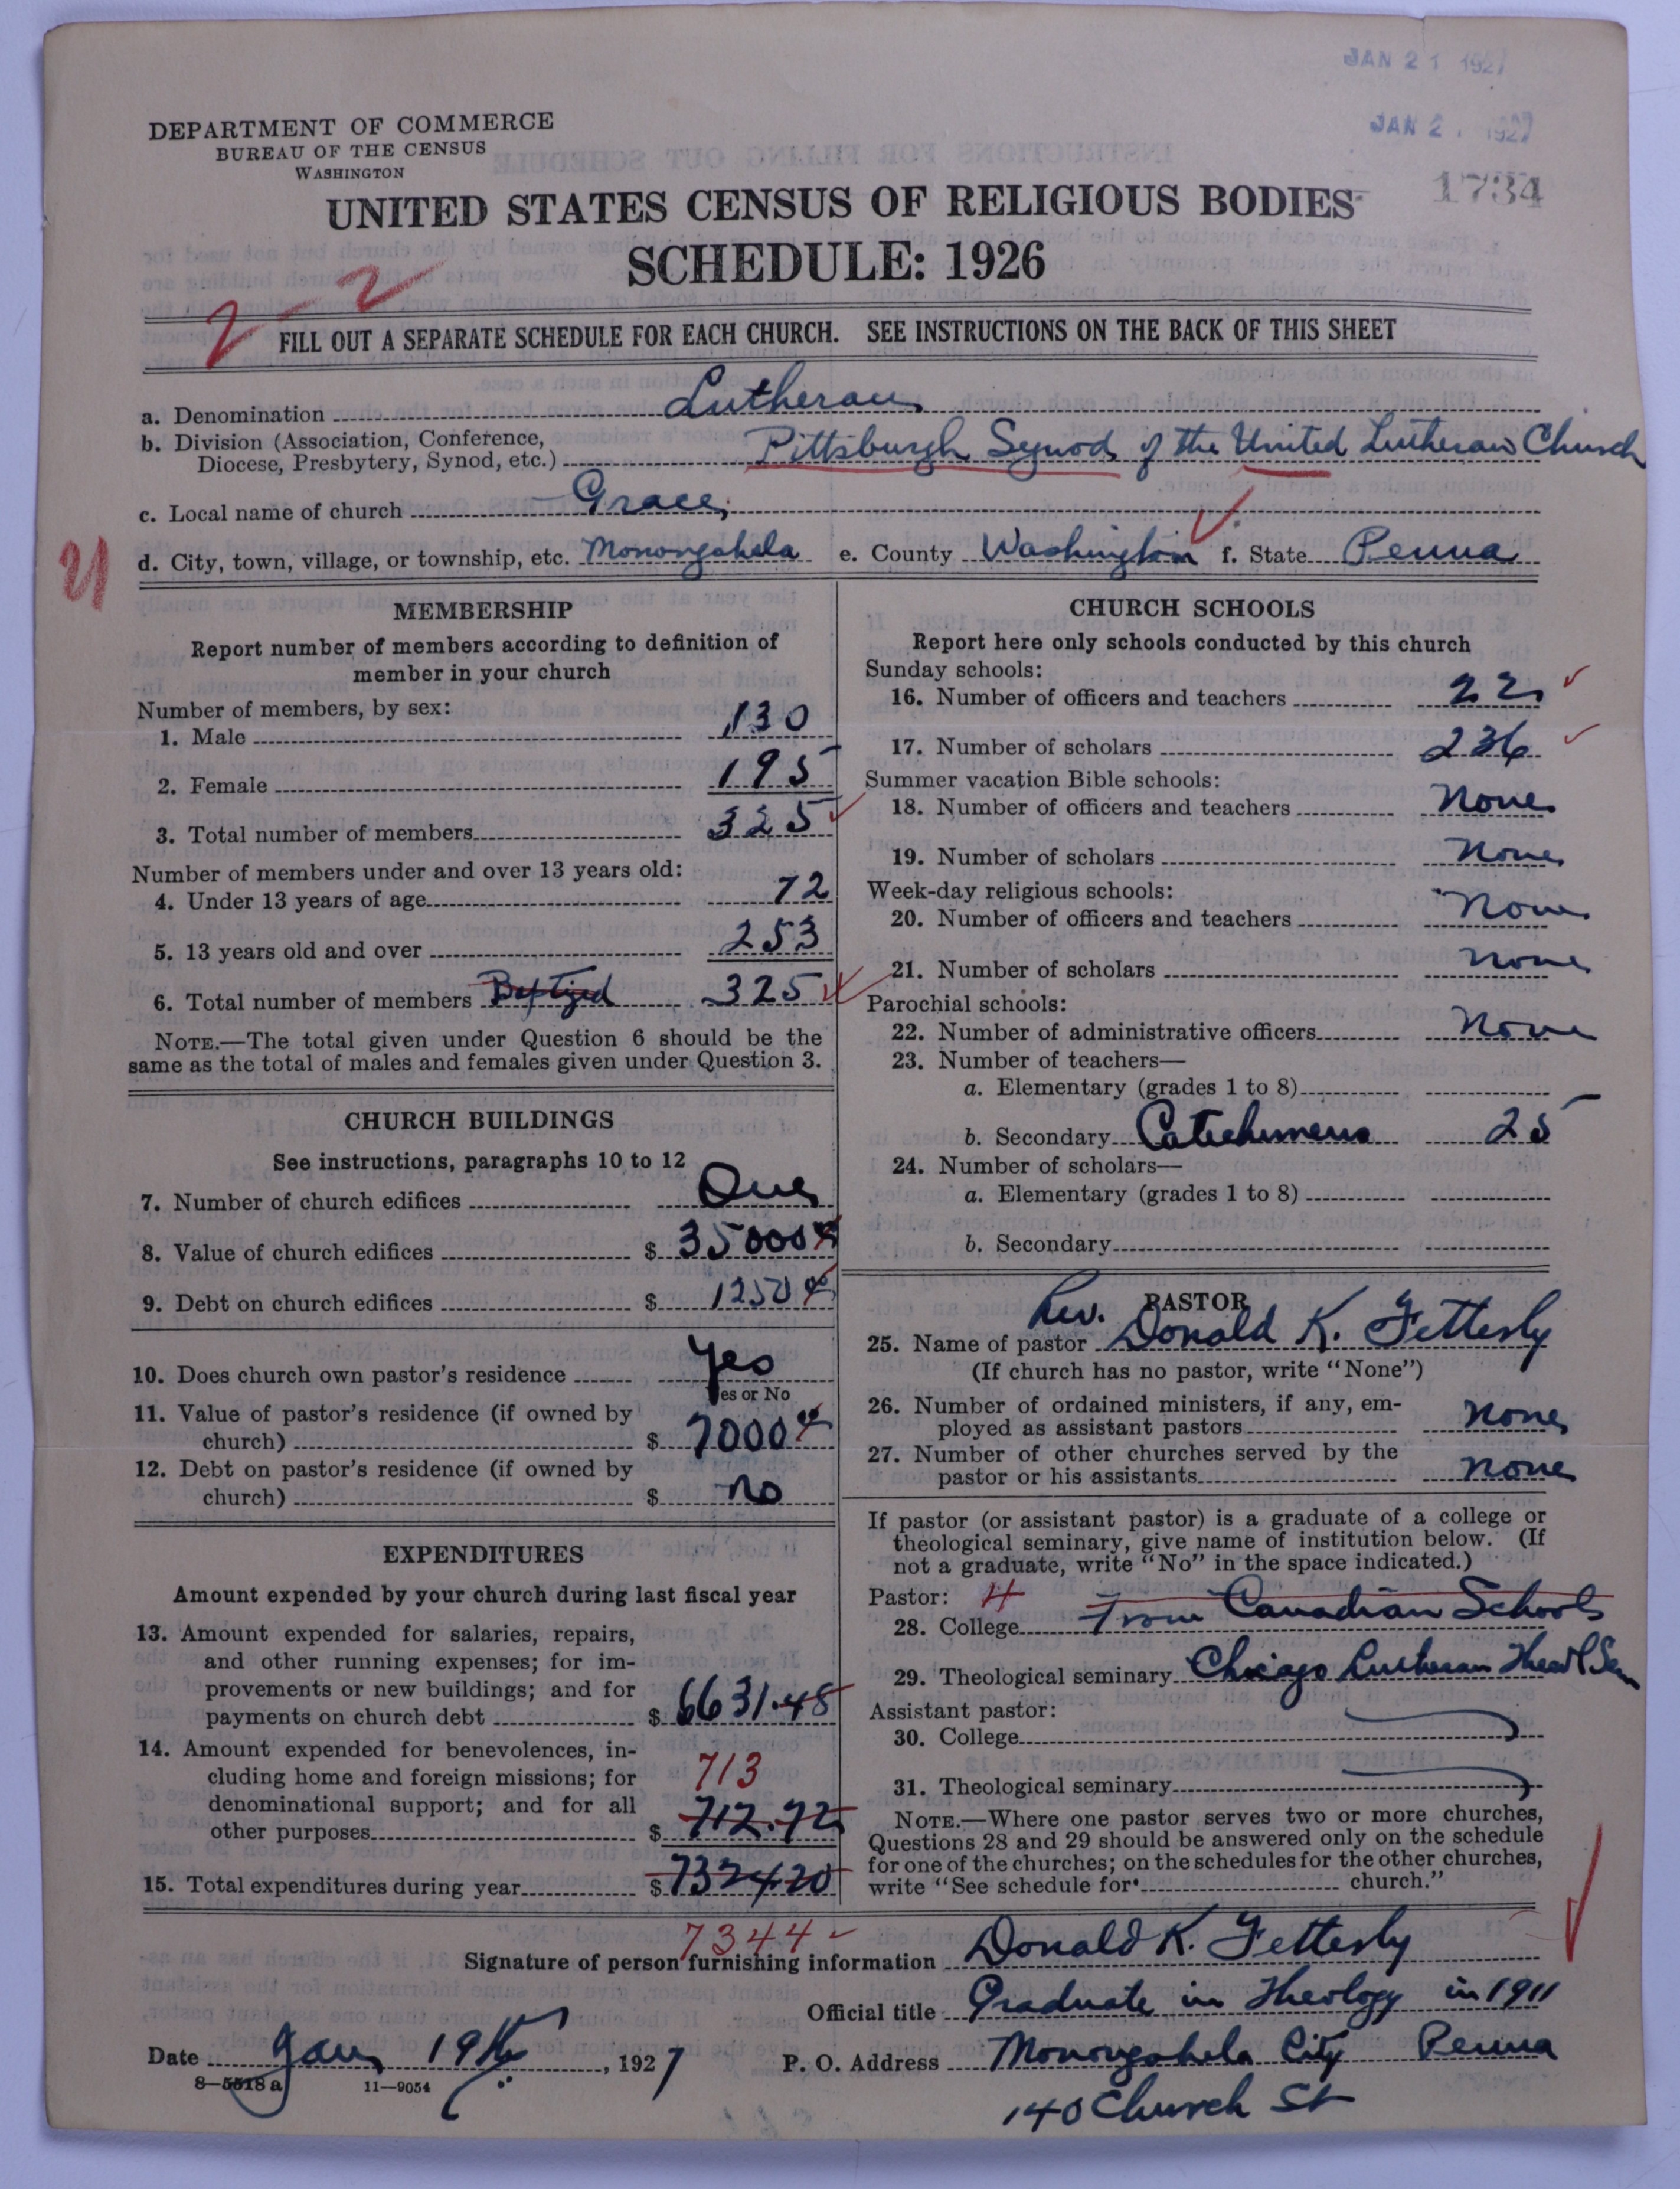 JAN 21 1927
JAN 2 1927
DEPARTMENT OF COMMERCE
BUREAU OF THE CENSUS
WASHINGTON
1734
UNITED STATES CENSUS OF RELIGIOUS BODIES
SCHEDULE: 1926
2-2
FILL OUT A SEPARATE SCHEDULE FOR EACH CHURCH. SEE INSTRUCTIONS ON THE BACK OF THIS SHEET
a. Denomination Lutheran
b. Division (Association, Conference,
Diocese, Presbytery, Synod, etc.) Pittsburgh Synod of the United Lutheran Church
c. Local name of church Grace
21
d. City, town, village, or township, etc. Monongahela e. County Washington f. State Penna
MEMBERSHIP
Report number of members according to definition of
member in your church
Number of members, by sex:
1. Male 130
2. Female 195
3. Total number of members 325
Number of members under and over 13 years old:
4. Under 13 years of age 72
5. 13 years old and over 253
6. Total number of members Baptized 325
NOTE.—The total given under Question 6 should be the
same as the total of males and females given under Question 3.
CHURCH BUILDINGS
See instructions, paragraphs 10 to 12
7. Number of church edifices One
8. Value of church edifices $ 35000
9. Debt on church edifices $ 1250
10. Does church own pastor's residence Yes
Yes or No
11. Value of pastor's residence (if owned by
church) $ 7000
12. Debt on pastor's residence (if owned by
church) $ no
EXPENDITURES
Amount expended by your church during last fiscal year
13. Amount expended for salaries, repairs,
and other running expenses; for im-
provements or new buildings; and for
payments on church debt $ 6631.48
14. Amount expended for benevolences, in-
cluding home and foreign missions; for 713
denominational support; and for all
other purposes $ 712.72
15. Total expenditures during year $ 734420
7344
CHURCH SCHOOLS
Report here only schools conducted by this church
Sunday schools:
16. Number of officers and teachers 22
17. Number of scholars 236
Summer vacation Bible schools:
18. Number of officers and teachers None
19. Number of scholars None
Week-day religious schools:
20. Number of officers and teachers None
21. Number of scholars None
Parochial schools:
22. Number of administrative officers None
23. Number of teachers—
a. Elementary (grades 1 to 8)
b. Secondary Catechumens 25
24. Number of scholars—
a. Elementary (grades 1 to 8)
b. Secondary
PASTOR
25. Name of pastor Rev. Donald K. Fetterly
(If church has no pastor, write "None")
26. Number of ordained ministers, if any, em-
ployed as assistant pastors None
27. Number of other churches served by the
pastor or his assistants None
If pastor (or assistant pastor) is a graduate of a college or
theological seminary, give name of institution below. (If
not a graduate, write "No" in the space indicated.)
Pastor: H
28. College From Canadian Schools
29. Theological seminary Chicago Lutheran Theo'l Sem
Assistant pastor:
30. College
31. Theological seminary
NOTE.—Where one pastor serves two or more churches,
Questions 28 and 29 should be answered only on the schedule
for one of the churches; on the schedules for the other churches,
write "See schedule for church."
Signature of person furnishing information Donald K. Fetterly
Official title Graduate in Theology in 1911
Date Jan 19th, 1927 P. O. Address Monongahela City Penna
8—5518 a 11—9054
140 Church St